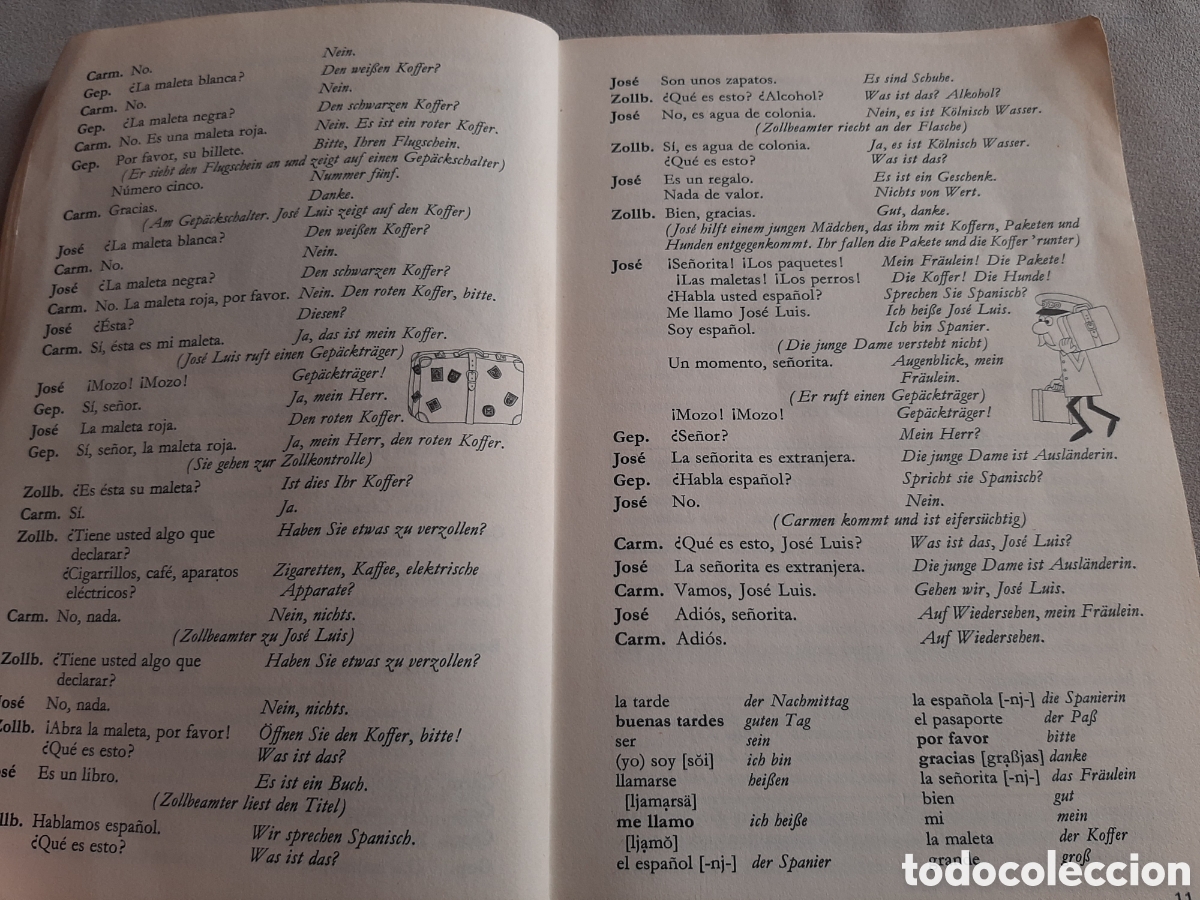 Nein.
Carm. No. Den weißen Koffer?
Gep. ¿La maleta blanca? Nein.
Carm. No. Den schwarzen Koffer?
Gep. ¿La maleta negra? Nein. Es ist ein roter Koffer.
Carm. No. Es una maleta roja. Bitte, Ihren Flugschein.
Gep. Por favor, su billete.
(Er sieht den Flugschein an und zeigt auf einen Gepäckschalter)
Número cinco. Nummer fünf.
Carm. Gracias. Danke.
(Am Gepäckschalter. José Luis zeigt auf den Koffer)
José ¿La maleta blanca? Den weißen Koffer?
Carm. No. Nein.
José ¿La maleta negra? Den schwarzen Koffer?
Carm. No. La maleta roja, por favor. Nein. Den roten Koffer, bitte.
José ¿Ésta? Diesen?
Carm. Sí, ésta es mi maleta. Ja, das ist mein Koffer.
(José Luis ruft einen Gepäckträger)
José ¡Mozo! ¡Mozo! Gepäckträger!
Gep. Sí, señor. Ja, mein Herr.
José La maleta roja. Den roten Koffer.
Gep. Sí, señor, la maleta roja. Ja, mein Herr, den roten Koffer.
(Sie gehen zur Zollkontrolle)
Zollb. ¿Es ésta su maleta? Ist dies Ihr Koffer?
Carm. Sí. Ja.
Zollb. ¿Tiene usted algo que Haben Sie etwas zu verzollen?
declarar?
¿Cigarrillos, café, aparatos Zigaretten, Kaffee, elektrische
eléctricos? Apparate?
Carm. No, nada. Nein, nichts.
(Zollbeamter zu José Luis)
Zollb. ¿Tiene usted algo que Haben Sie etwas zu verzollen?
declarar?
José No, nada. Nein, nichts.
Zollb. ¡Abra la maleta, por favor! Öffnen Sie den Koffer, bitte!
¿Qué es esto? Was ist das?
José Es un libro. Es ist ein Buch.
(Zollbeamter liest den Titel)
llb. Hablamos español. Wir sprechen Spanisch.
¿Qué es esto? Was ist das?
José Son unos zapatos. Es sind Schuhe.
Zollb. ¿Qué es esto? ¿Alcohol? Was ist das? Alkohol?
José No, es agua de colonia. Nein, es ist Kölnisch Wasser.
(Zollbeamter riecht an der Flasche)
Zollb. Sí, es agua de colonia. Ja, es ist Kölnisch Wasser.
¿Qué es esto? Was ist das?
José Es un regalo. Es ist ein Geschenk.
Nada de valor. Nichts von Wert.
Zollb. Bien, gracias. Gut, danke.
(José hilft einem jungen Mädchen, das ihm mit Koffern, Paketen und
Hunden entgegenkommt. Ihr fallen die Pakete und die Koffer 'runter)
José ¡Señorita! ¡Los paquetes! Mein Fräulein! Die Pakete!
¡Las maletas! ¡Los perros! Die Koffer! Die Hunde!
¿Habla usted español? Sprechen Sie Spanisch?
Me llamo José Luis. Ich heiße José Luis.
Soy español. Ich bin Spanier.
(Die junge Dame versteht nicht)
Un momento, señorita. Augenblick, mein
Fräulein.
(Er ruft einen Gepäckträger)
¡Mozo! ¡Mozo! Gepäckträger!
Gep. ¿Señor? Mein Herr?
José La señorita es extranjera. Die junge Dame ist Ausländerin.
Gep. ¿Habla español? Spricht sie Spanisch?
José No. Nein.
(Carmen kommt und ist eifersüchtig)
Carm. ¿Qué es esto, José Luis? Was ist das, José Luis?
José La señorita es extranjera. Die junge Dame ist Ausländerin.
Carm. Vamos, José Luis. Gehen wir, José Luis.
José Adiós, señorita. Auf Wiedersehen, mein Fräulein.
Carm. Adiós. Auf Wiedersehen.
la tarde der Nachmittag
buenas tardes guten Tag
ser sein
(yo) soy [sŏi] ich bin
llamarse heißen
[ljamạrsä]
me llamo ich heiße
[ljạmŏ]
el español [-nj-] der Spanier
la española [-nj-] die Spanierin
el pasaporte der Paß
por favor bitte
gracias [grạßjas] danke
la señorita [-nj-] das Fräulein
bien gut
mi mein
la maleta der Koffer
grande groß
11
todocoleccion